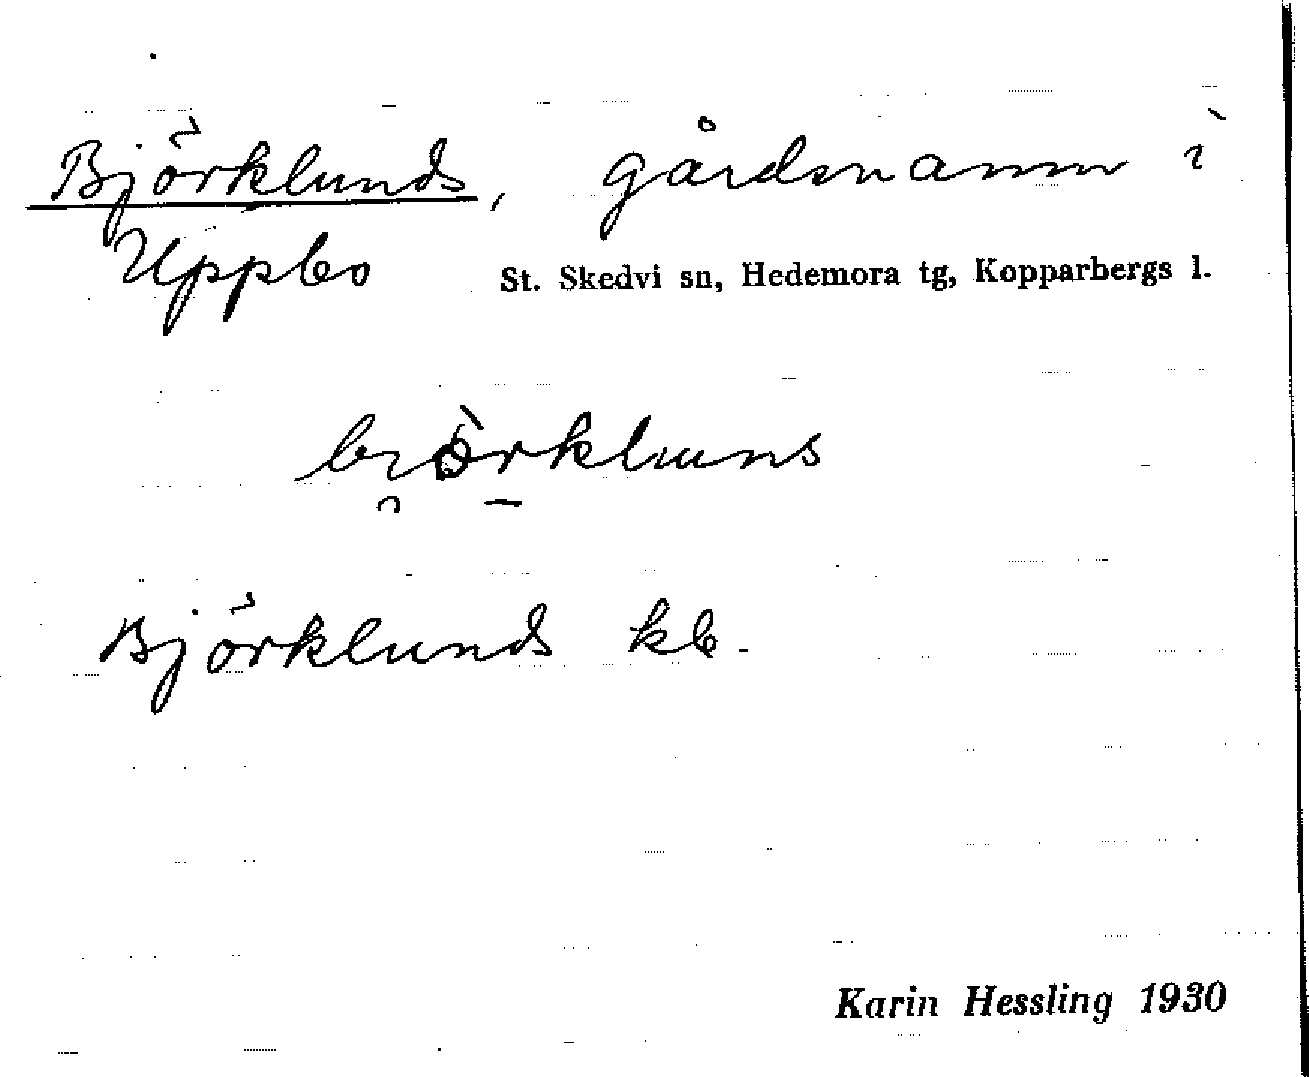 Björklunds, gårdsnamn i
Uppbo St. Skedvi sn, Hedemora tg, Kopparbergs l.
bi̯ö̀rkluns
Björklunds kb.
Karin Hessling 1930